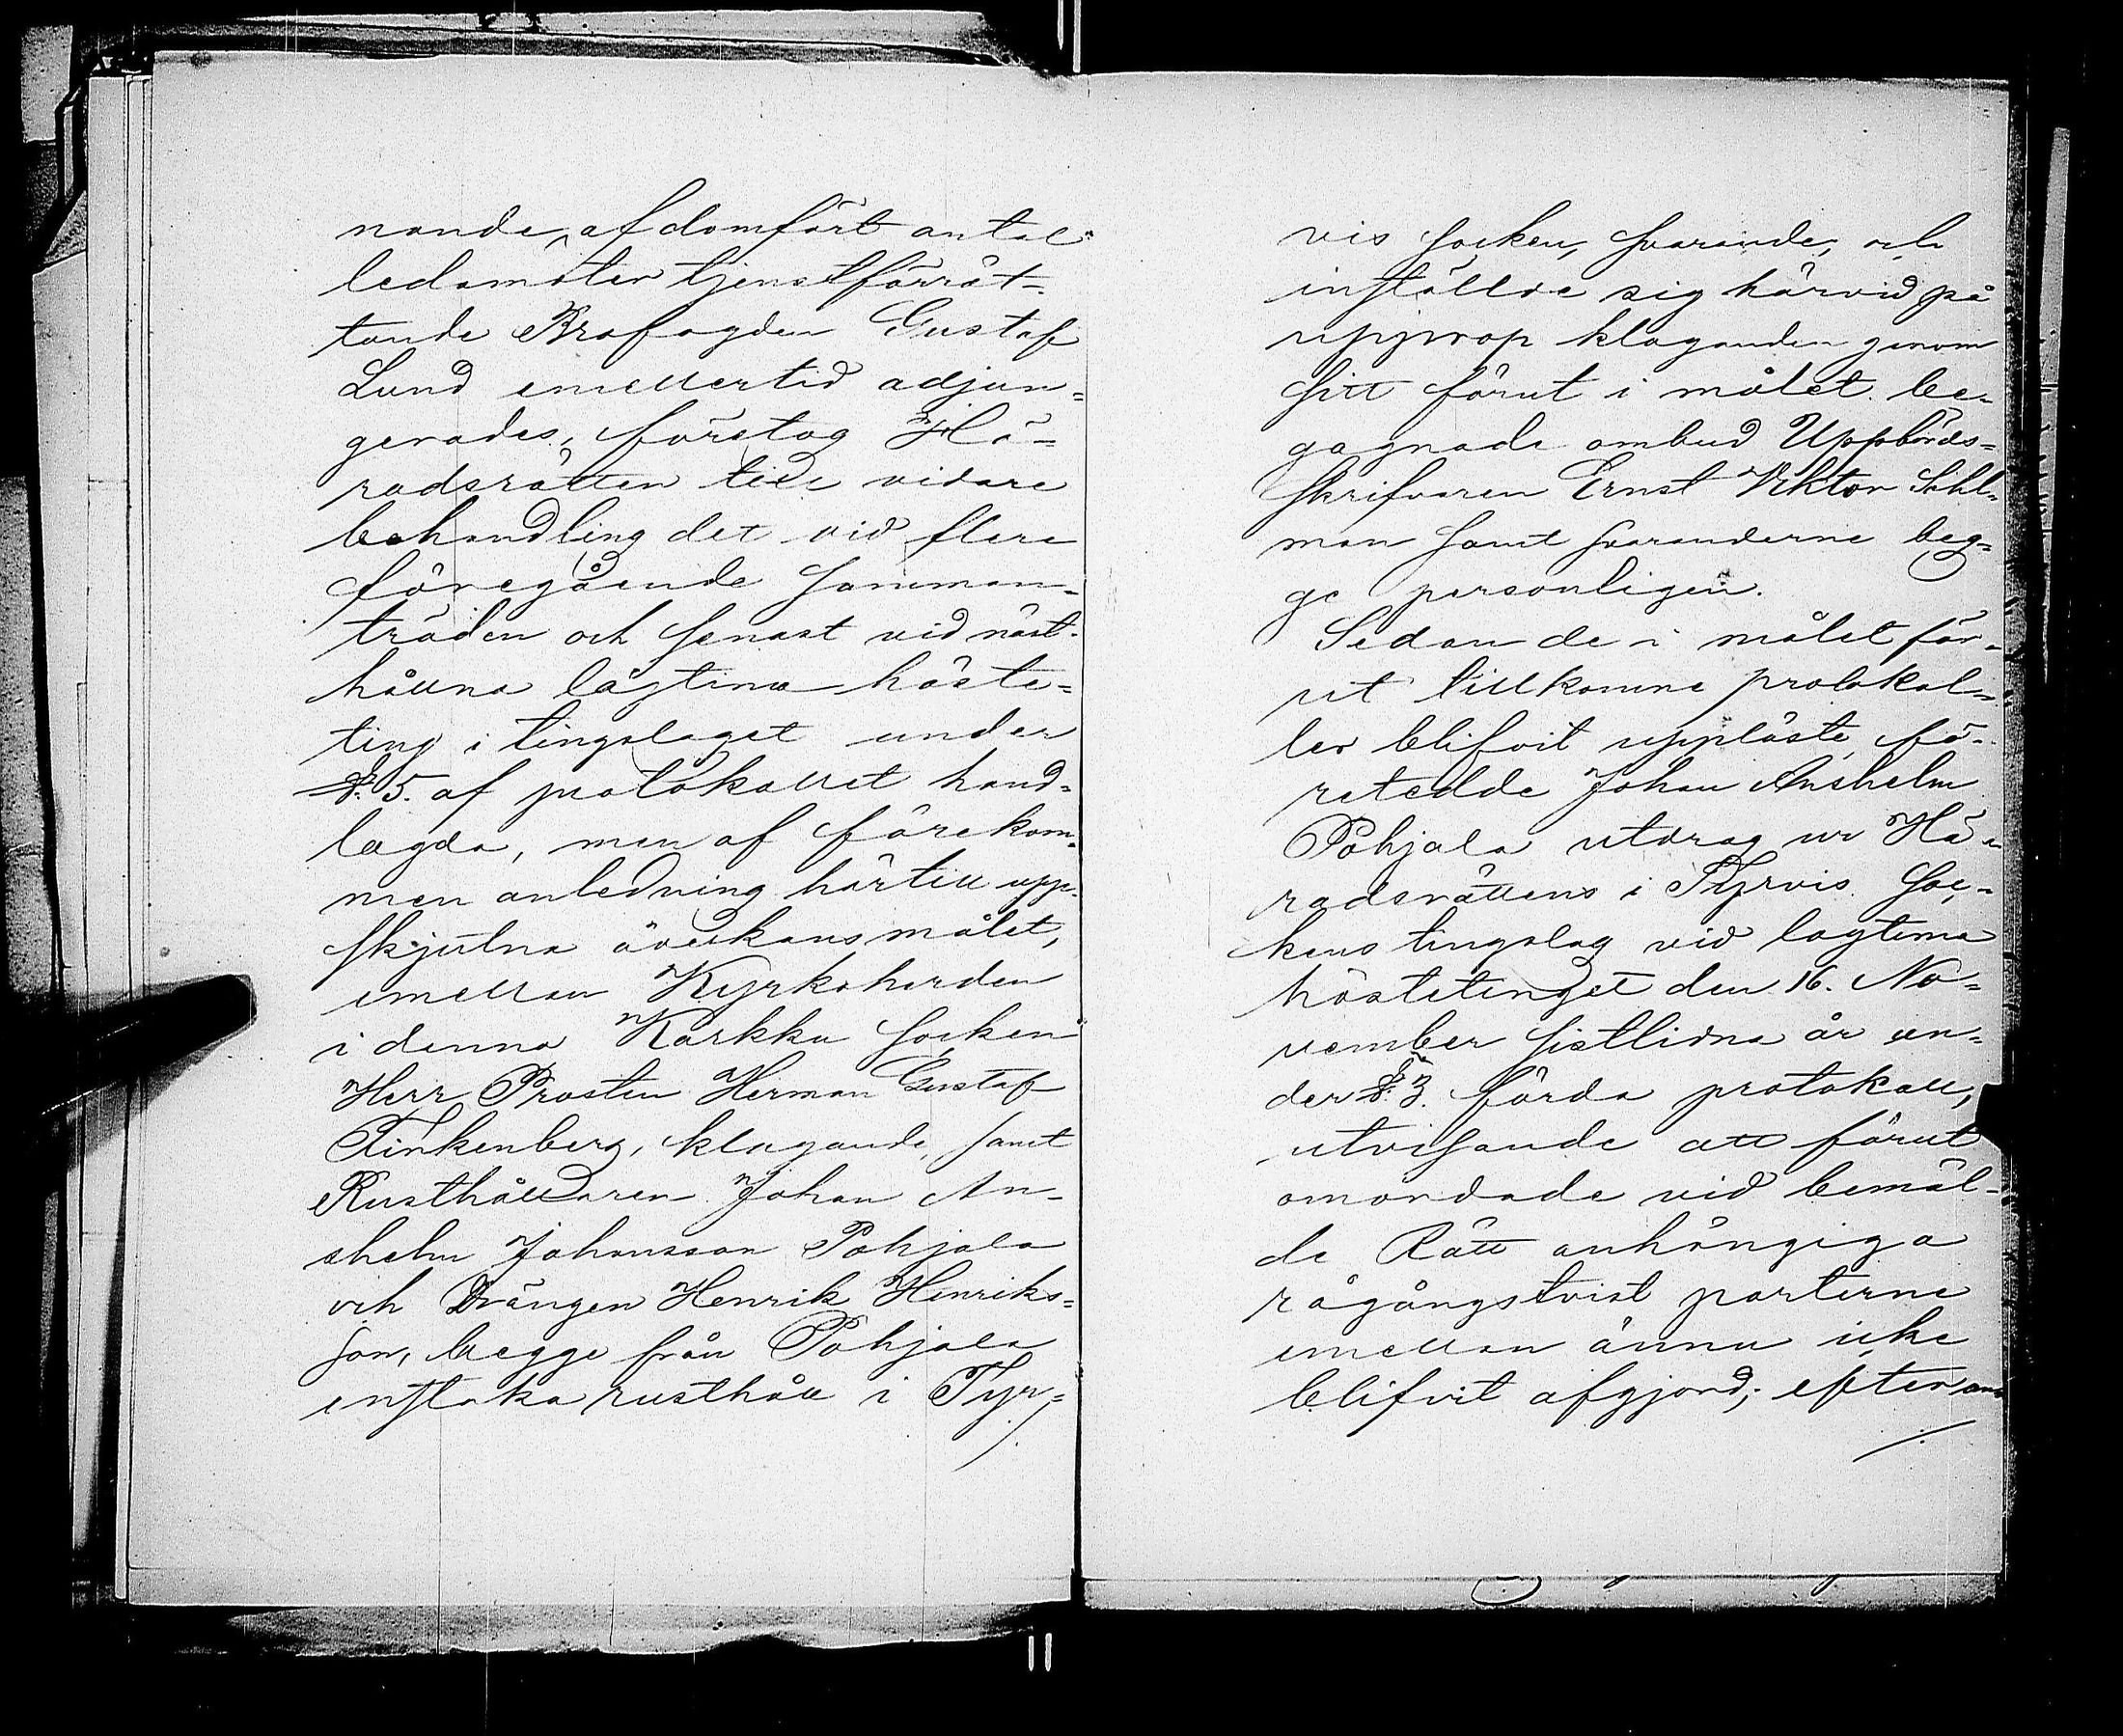 nande, af domfört antal
ledamöter tjenstförrät-
tande Brofogden Gustaf
Lund emellertid adjun-
gerades, företog Hä-
radsrätten till vidare
behandling det vid flere
föregående samman-
träden och senast vid näst-
hållna lagtima höste-
ting i tingslaget under
§. 5. af protokollet hand-
lagda, men af förekom-
men anledning härtill upp-
skjutna åverkansmålet,
emellan Kyrkoherden
i denna Karkku socken
Herr Prosten Herman Gustaf
Finkenberg, klagande, samt
Rusthållaren Johan An-
shelm Johansson Pohjala
och Drängen Henrik Henriks-
son, begge från Pohjala
enstaka rusthåll i Tyr-
/.
vis socken, svarande; och
inställde sig härvid på
upprop klaganden genom
sitt förut i målet be-
gagnade ombud Uppbörds-
skrifvaren Ernst Viktor Sohl-
man samt svaranderne beg-
ge personligen.
Sedan de i målet för-
ut tillkomne protokol-
ler blifvit uppläste, fö-
retedde Johan Anshelm
Pohjala utdrag ur Hä-
radsrättens i Tyrvis soc-
kens tingslag vid lagtima
höstetinget den 16. No-
vember sistlidna år un-
der §. 3. förda protokoll,
utvisande att förut
omordade vid bemäl-
de Rätt anhängiga
rågångstvist parterne
emellan ännu icke
blifvit afgjord; efter
/.